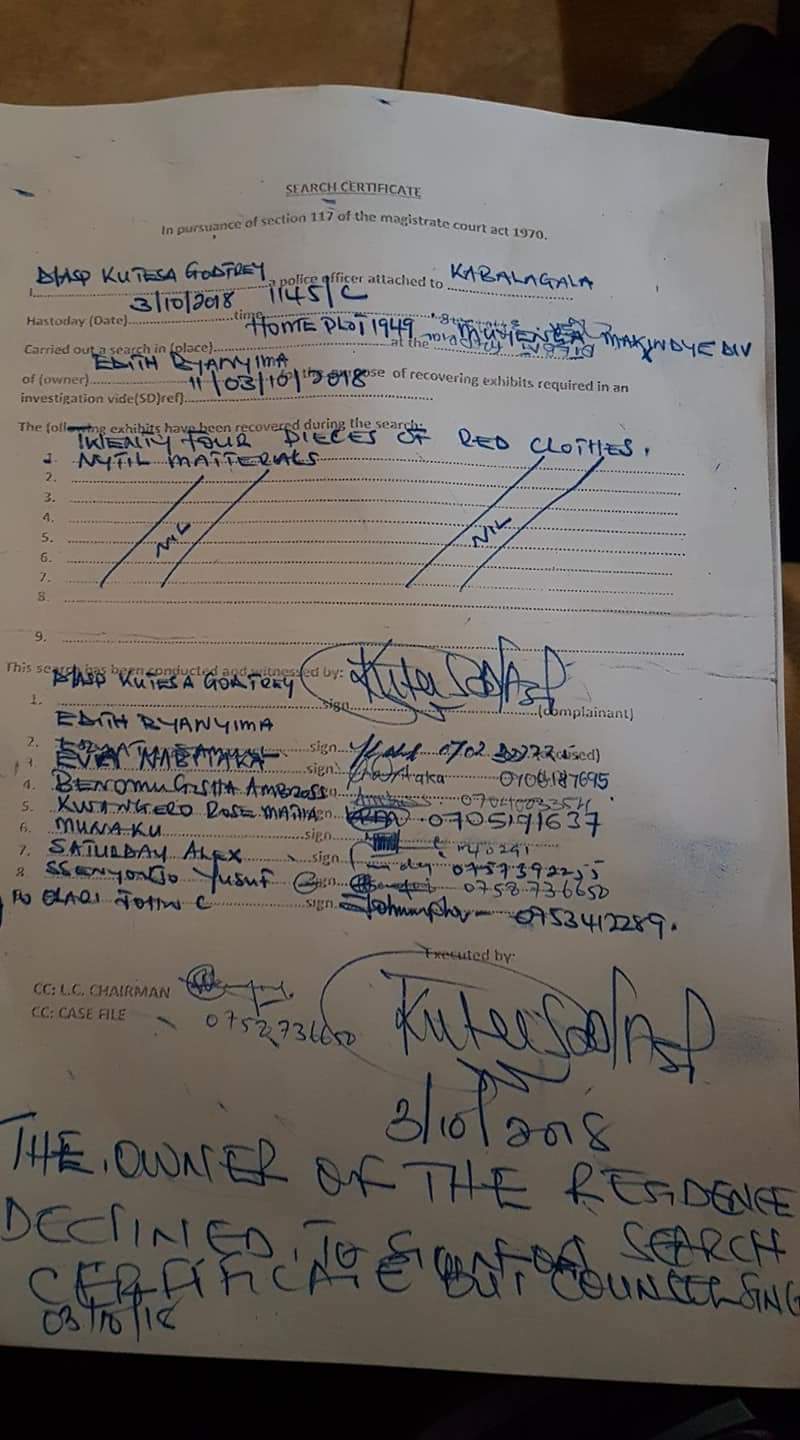 SEARCH CERTIFICATE
In pursuance of section 117 of the magistrate court act 1970.
I D/ASP KUTESA GODFREY a police officer attached to KABALAGALA
Hastoday (Date) 3/10/2018 time 1145/C
Carried out a search in (place) HOME PLOT 1949 at the MUYENGA MAKINDYE DIV
of (owner) EDITH BYANYIMA for the purpose of recovering exhibits required in an
investigation vide(SD)ref) 11/03/10/2018
The following exhibits have been recovered during the search:
1. TWENTY FOUR PIECES OF RED CLOTHES.
NYTIL MATTERIALS
2.
3.
4.
5. NIL NIL
6.
7.
8.
9.
This search has been conducted and witnessed by:
1. D/ASP KUTESA GODFREY sign Kutesa D/ASP (complainant)
2. EDITH BYANYIMA sign 0702
3. EVA NABATAKA sign 0706187695
4. BENOMUGISHA AMBROSS
5. KWANGERO ROSE sign 0705191637
6. MUNAKU sign
7. SATURDAY ALEX sign
8. SSENYONJO YUSUF sign 0758736650
OLARI JOHN C sign 0753412289.
Executed by:
CC: L.C. CHAIRMAN
CC: CASE FILE 0752736650
Kutesa D/ASP
3/10/2018
THE OWNER OF THE RESIDENCE
DECLINED TO SIGN SEARCH
CERTIFICATE BUT COUNSELSING
03/10/18